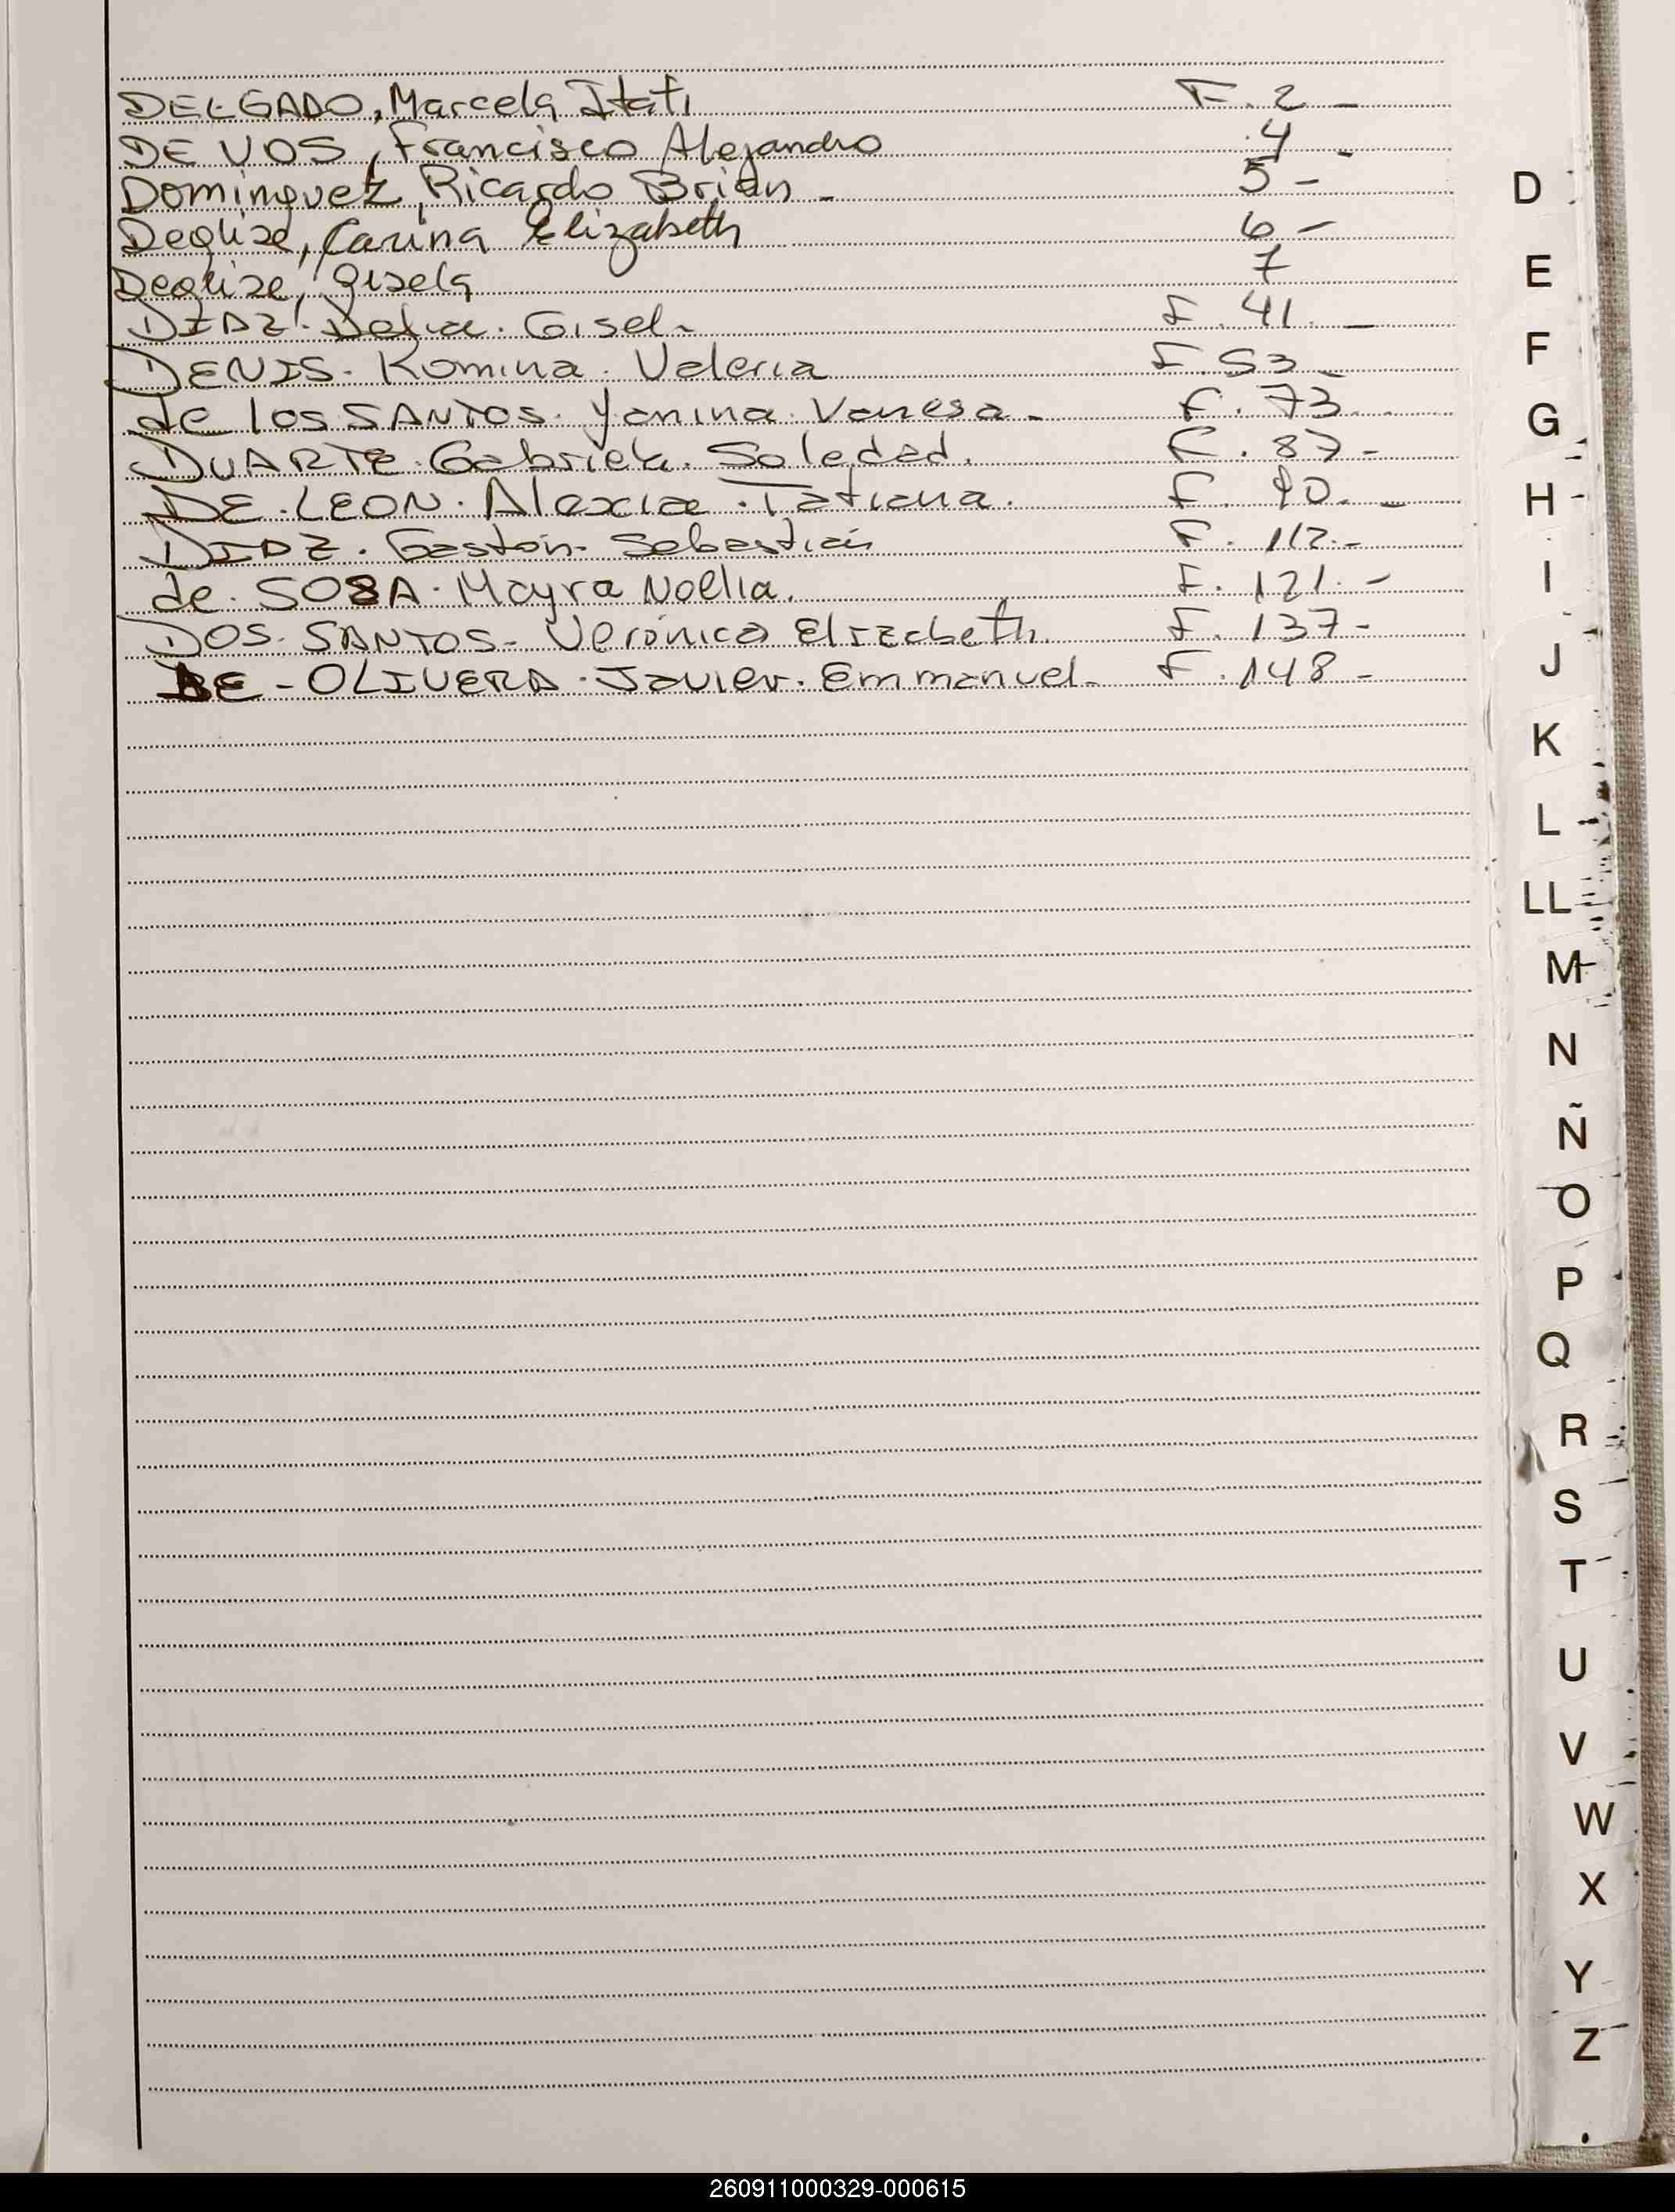 DELGADO, Marcela Itati F. 2 -
DE VOS, Francisco Alejandro 4 -
Dominguez, Ricardo Brian - 5 -
Deglise, Carina Elizabeth 6 -
Deglise, Gisela 7
DIAZ. Delia. Gisel - F. 41. -
DENIS. Romina. Valeria F. 53 -
de los SANTOS. Yanina. Vanesa - F. 73.
DUARTE. Gabriela. Soledad. F. 87 -
DE. LEON. Alexia. Tatiana. F. 90. -
DIAZ. Gastón. Sebastian F. 112. -
de. SOSA. Mayra Noelia. F. 121. -
DOS. SANTOS - Verónica Elizabeth. F. 137 -
DE - OLIVERA. Javier. Emmanuel - F. 148 -
D
E
F
G
H
I
J
K
L
LL
M
N
Ñ
O
P
Q
R
S
T
U
V
W
X
Y
Z
260911000329-000615